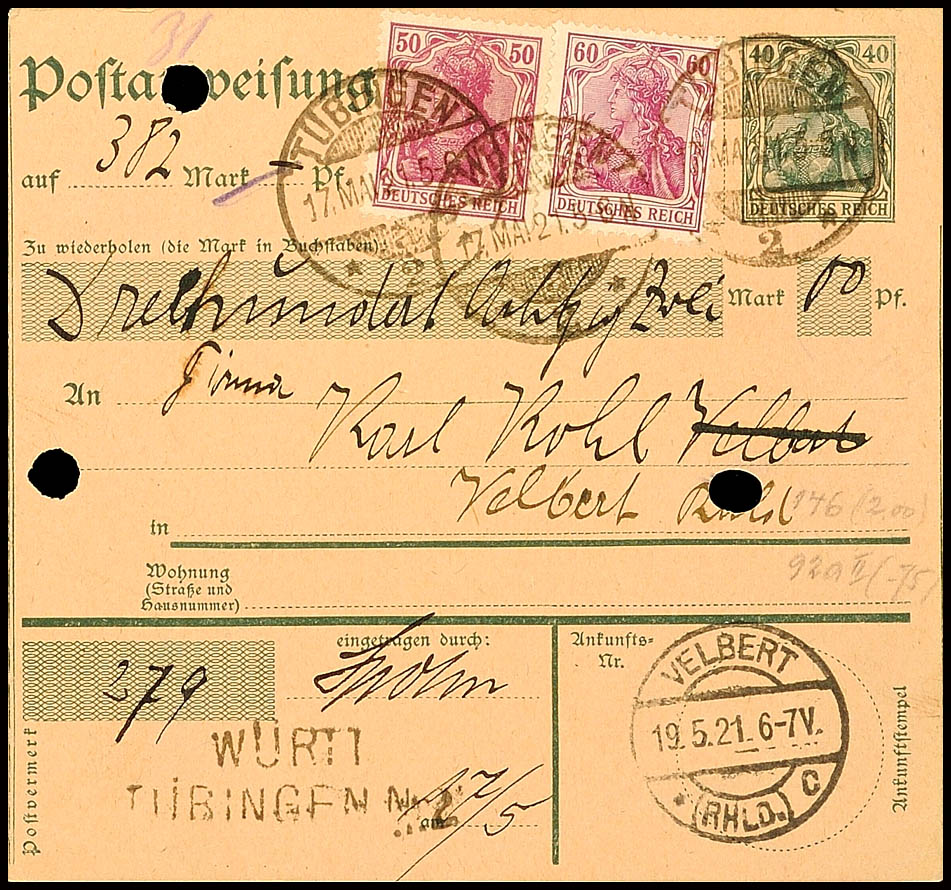 31
50 50
60 60
40 40
DEUTSCHES REICH
DEUTSCHES REICH
DEUTSCHES REICH
Postanweisung
TÜBINGEN
17.MAI 21.5-6N
TÜBINGEN
17.MAI 21.5-6N
TÜBINGEN
2
auf 382 Mark — Pf.
Zu wiederholen (die Mark in Buchstaben):
Dreihundert Achtzig Zwei Mark 00 Pf.
An Firma
Karl Kohl Velbert
Velbert Rhld
146 (2.00)
in
92a II (-75)
Wohnung
(Straße und
Hausnummer)
Postvermerk
279
eingetragen durch:
am 17/5
WÜRTT
TÜBINGEN Nr. 2
Ankunfts-
Nr.
VELBERT
19.5.21. 6-7V.
* (RHLD.) C
Ankunftstempel